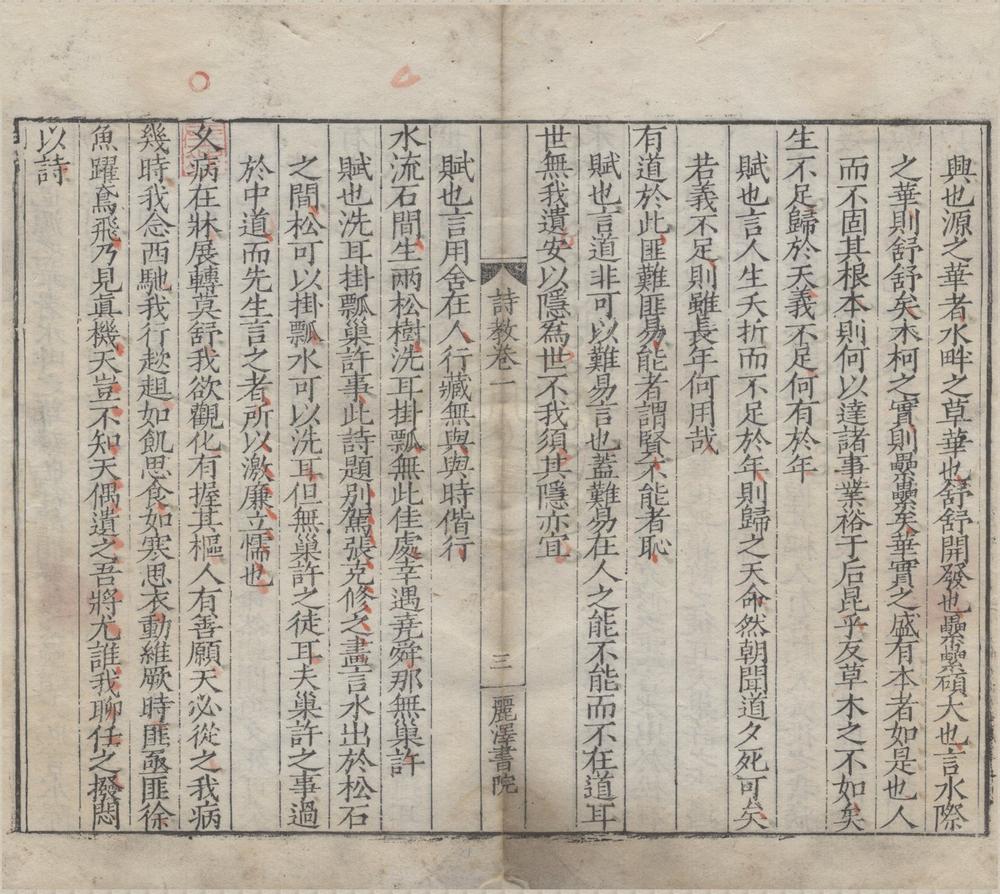 興也源之華者水畔之草華也舒舒開發也㶟㶟碩大也言水際
之華則舒舒矣木柯之實則㶟㶟矣華實之盛有本者如是也人
而不固其根本則何以達諸事業裕于后昆乎友草木之不如矣
生不足歸於天義不足何有於年
賦也言人生夭折而不足於年則歸之天命然朝聞道夕死可矣
若義不足則雖長年何用哉
有道於此匪難匪易能者謂賢不能者恥
賦也言道非可以難易言也蓋難易在人之能不能而不在道耳
世無我遺安以隱為世不我須其隱亦宜
詩教卷一
三
麗澤書院
賦也言用舍在人行藏無與與時偕行
水流石間生兩松樹洗耳掛瓢無此佳處幸遇堯舜那無巢許
賦也洗耳掛瓢巢許事此詩題別駕張克修之畫言水出於松石
之間松可以掛瓢水可以洗耳但無巢許之徒耳夫巢許之事過
於中道而先生言之者所以激廉立懦也
久病在牀展轉莫舒我欲觀化有握其樞人有善願天必從之我病
幾時我念西馳我行趑趄如飢思食如寒思衣動維厥時匪亟匪徐
魚躍鳶飛乃見真機天豈不知天偶遺之吾將尤誰我聊任之撥悶
以詩